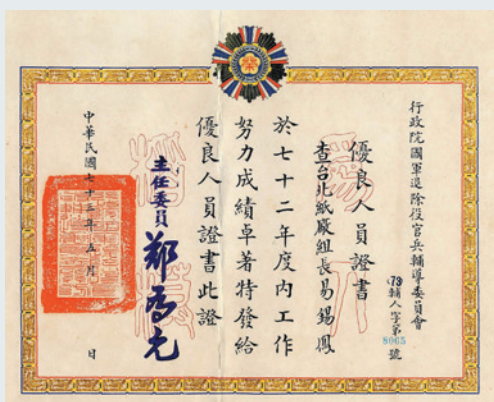 行政院國軍退除役官兵輔導委員會
優良人員證書
(73)輔人字第8065號
查台北紙廠組長易錫鳳
於七十二年度內工作
努力成績卓著特發給
優良人員證書此證
主任委員 鄭為元
中華民國七十三年五月 日